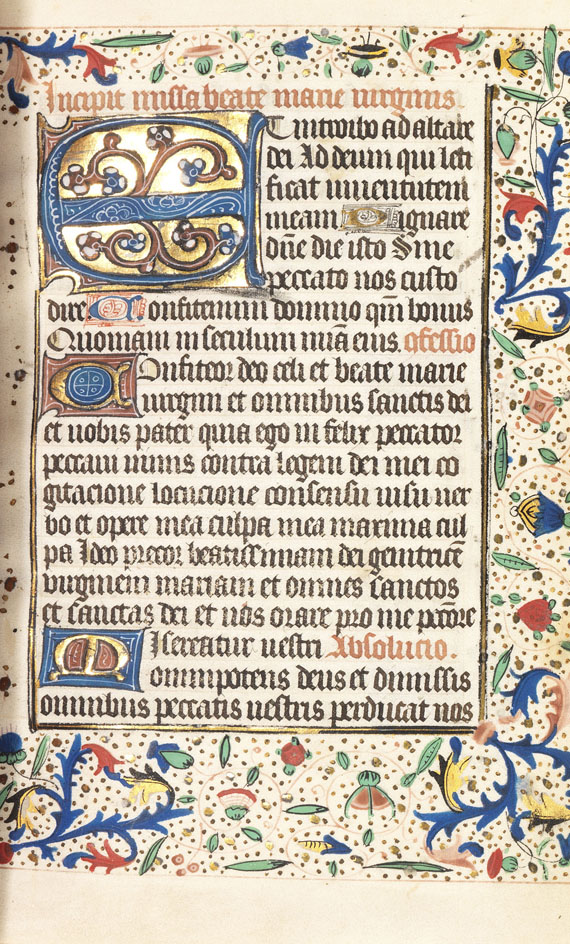 Incipit missa beate marie virginis.
Et introibo ad altare
dei Ad deum qui leti
ficat iuuentutem
meam Dignare
dn̄e die isto Sine
peccato nos custo
dire Confitemini domino qm̄ bonus
Quoniam in seculum mīa eius. ɔfessio
Confiteor deo celi et beate marie
uirgini et omnibus sanctis dei
et uobis pater quia ego infelix peccator
peccaui nimis contra legem dei mei co
gitacione locucione consensu uisu uer
bo et opere mea culpa mea maxima cul
pa Ideo precor beatissimam dei genitricē
uirginem mariam et omnes sanctos
et sanctas dei et nos orare pro me pctōre
Misereatur uestri Absolucio.
omnipotens deus et dimissis
omnibus peccatis uestris perducat nos